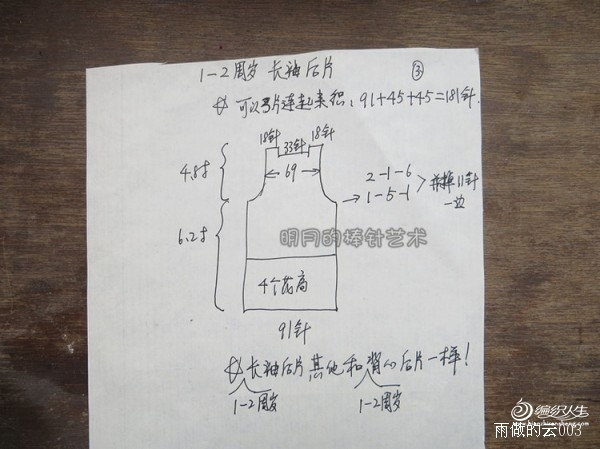 1-2周岁 长袖后片
③
可以3片连起来织，91+45+45=181针.
18针 33针 18针
4.8寸
69
2-1-6
1-5-1
并掉11针
一边
6.2寸
明月的棒针艺术
4个花高
91针
长袖后片其他和背心后片一样！
1-2周岁 1-2周岁
编织人生
雨做的云003